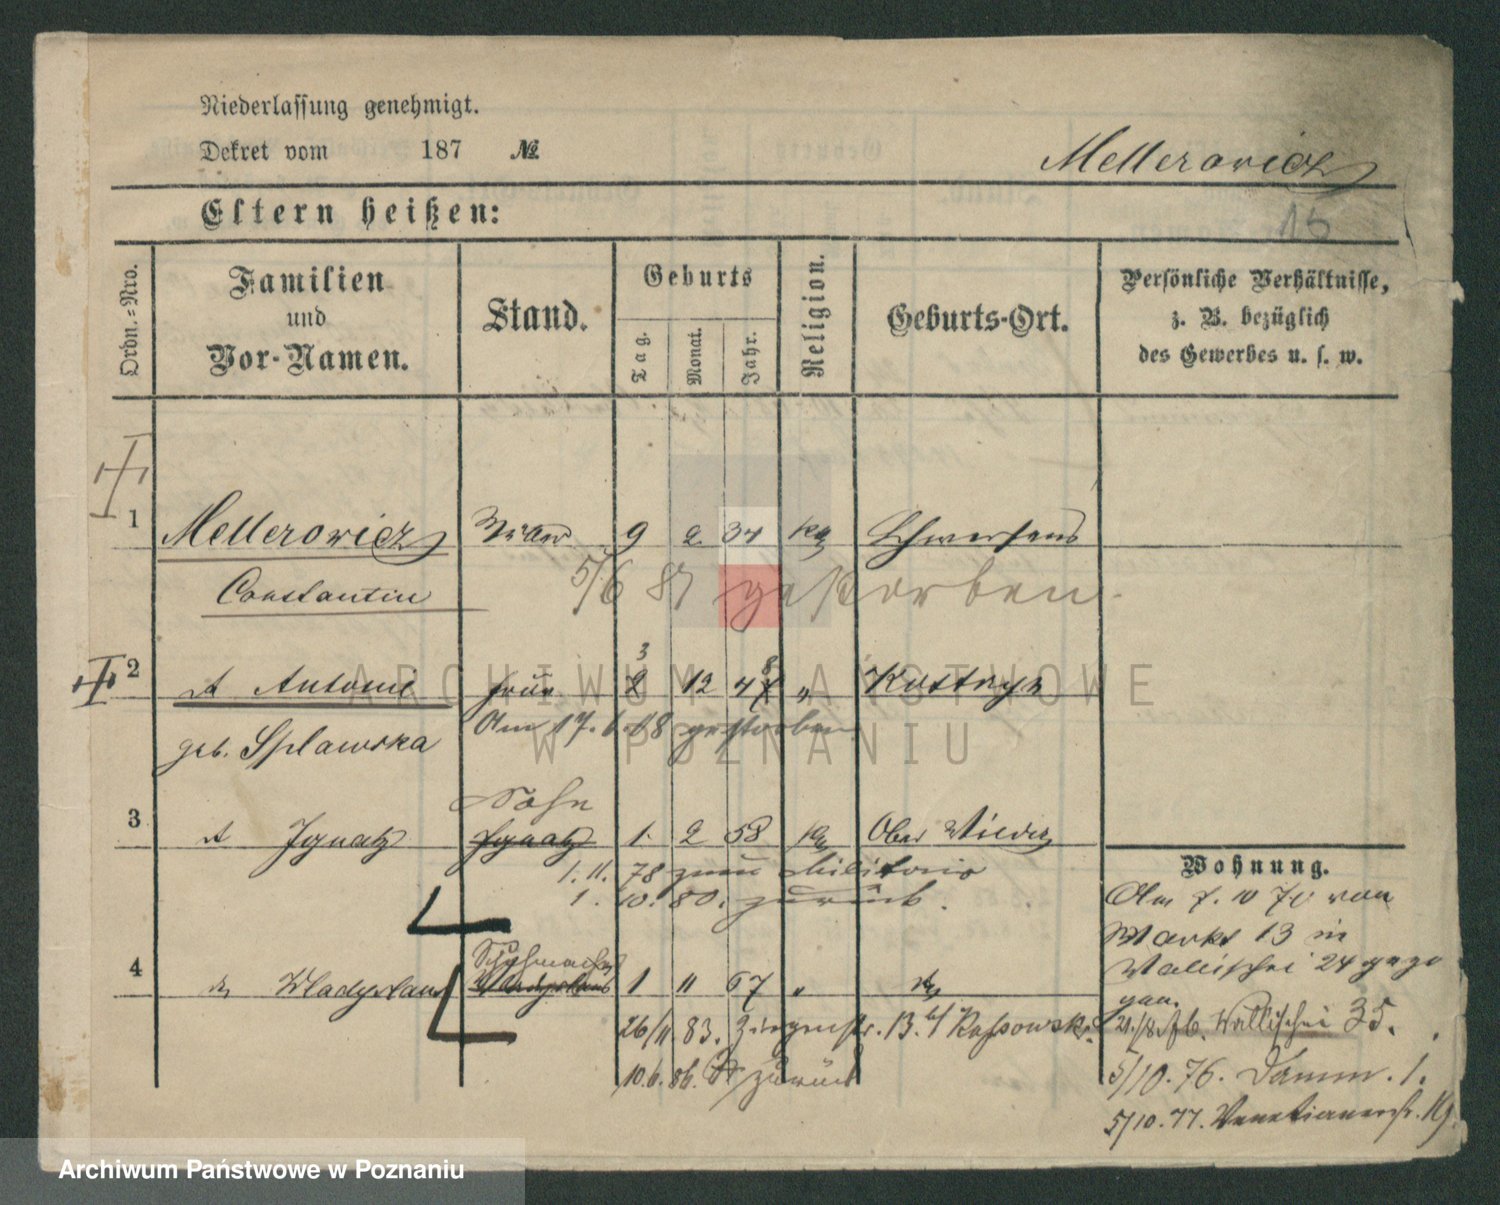 Niederlassung genehmigt.
Dekret vom 187 №
Mellerowicz
Eltern heißen:
15
Ordn.=Nro.
Familien und Vor-Namen.
Stand.
Geburts
Tag.
Monat.
Jahr.
Religion.
Geburts-Ort.
Persönliche Verhältnisse,
z. B. bezüglich
des Gewerbes u. s. w.
1 Mellerowicz 9 2 34 ka Schwersenz
Constantin 5/6 87 gestorben.
3 8
2 Antonie Frau 2 12 47 " Kostrzyn
geb. Splawska Am 17. 1. 18 gestorben
ARCHIWUM PAŃSTWOWE
W POZNANIU
Sohn
3 Ignatz Ignatz 1. 2 58 ka Ober Wieder
1. 11. 78 zum Militair
1. 10. 80. zurück.
Wohnung.
Am 7. 10 70 von
Markt 13 in
Wallischei 24 gezo
gen.
Schuhmacher
4 Wladyslaus Wladyslaus 1 11 67 "
26/11. 83. Ziegenstr. 13. b/ Kassowski.
10.6. 86. zurück
Wallischei 35.
5/10. 76. Damm. 1.
5/10. 77. Venetianerstr.
Archiwum Państwowe w Poznaniu